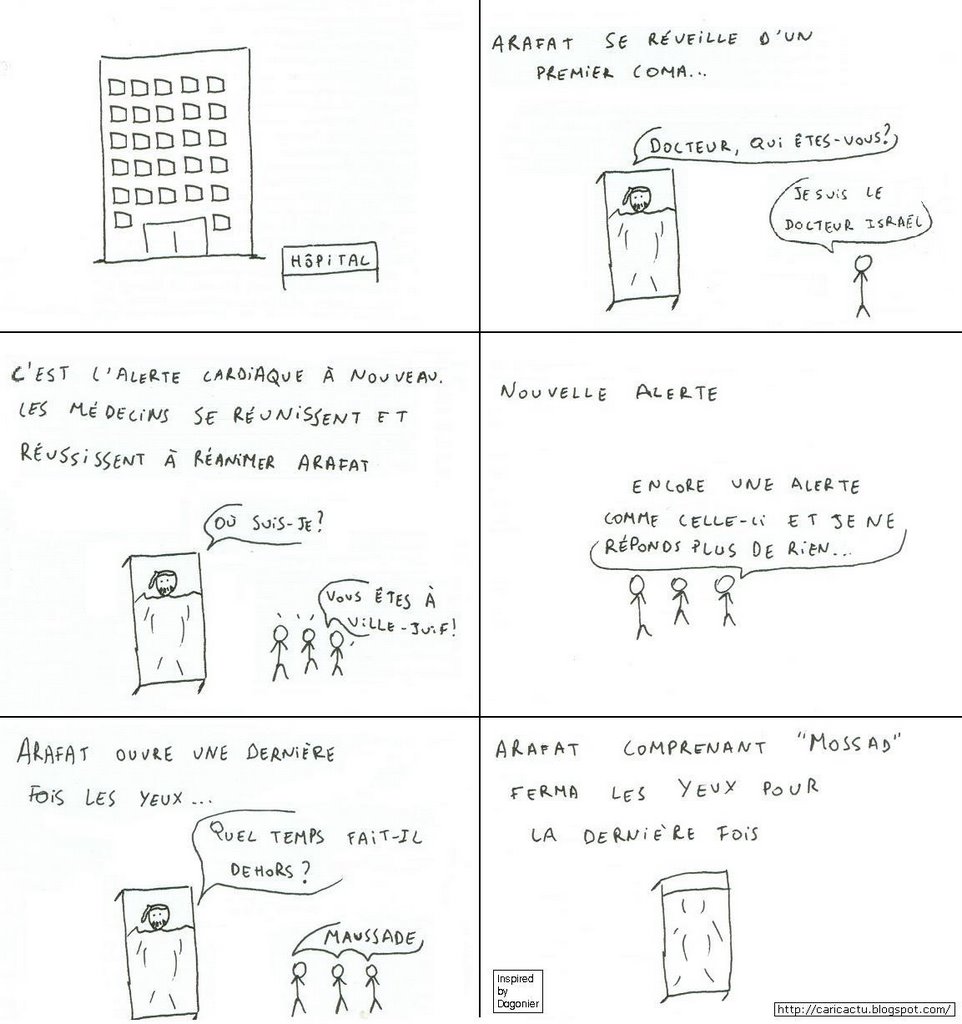 HÔPITAL
ARAFAT SE RÉVEILLE D'UN
PREMIER COMA...
DOCTEUR, QUI ÊTES-VOUS?
JE SUIS LE
DOCTEUR ISRAËL
C'EST L'ALERTE CARDIAQUE À NOUVEAU.
LES MÉDECINS SE RÉUNISSENT ET
RÉUSSISSENT À RÉANIMER ARAFAT
OÙ SUIS-JE?
VOUS ÊTES À
VILLE-JUIF!
NOUVELLE ALERTE
ENCORE UNE ALERTE
COMME CELLE-CI ET JE NE
RÉPONDS PLUS DE RIEN...
ARAFAT OUVRE UNE DERNIÈRE
FOIS LES YEUX...
QUEL TEMPS FAIT-IL
DEHORS?
MAUSSADE
ARAFAT COMPRENANT "MOSSAD"
FERMA LES YEUX POUR
LA DERNIÈRE FOIS
Inspired
by
Dagonier
http://caricactu.blogspot.com/